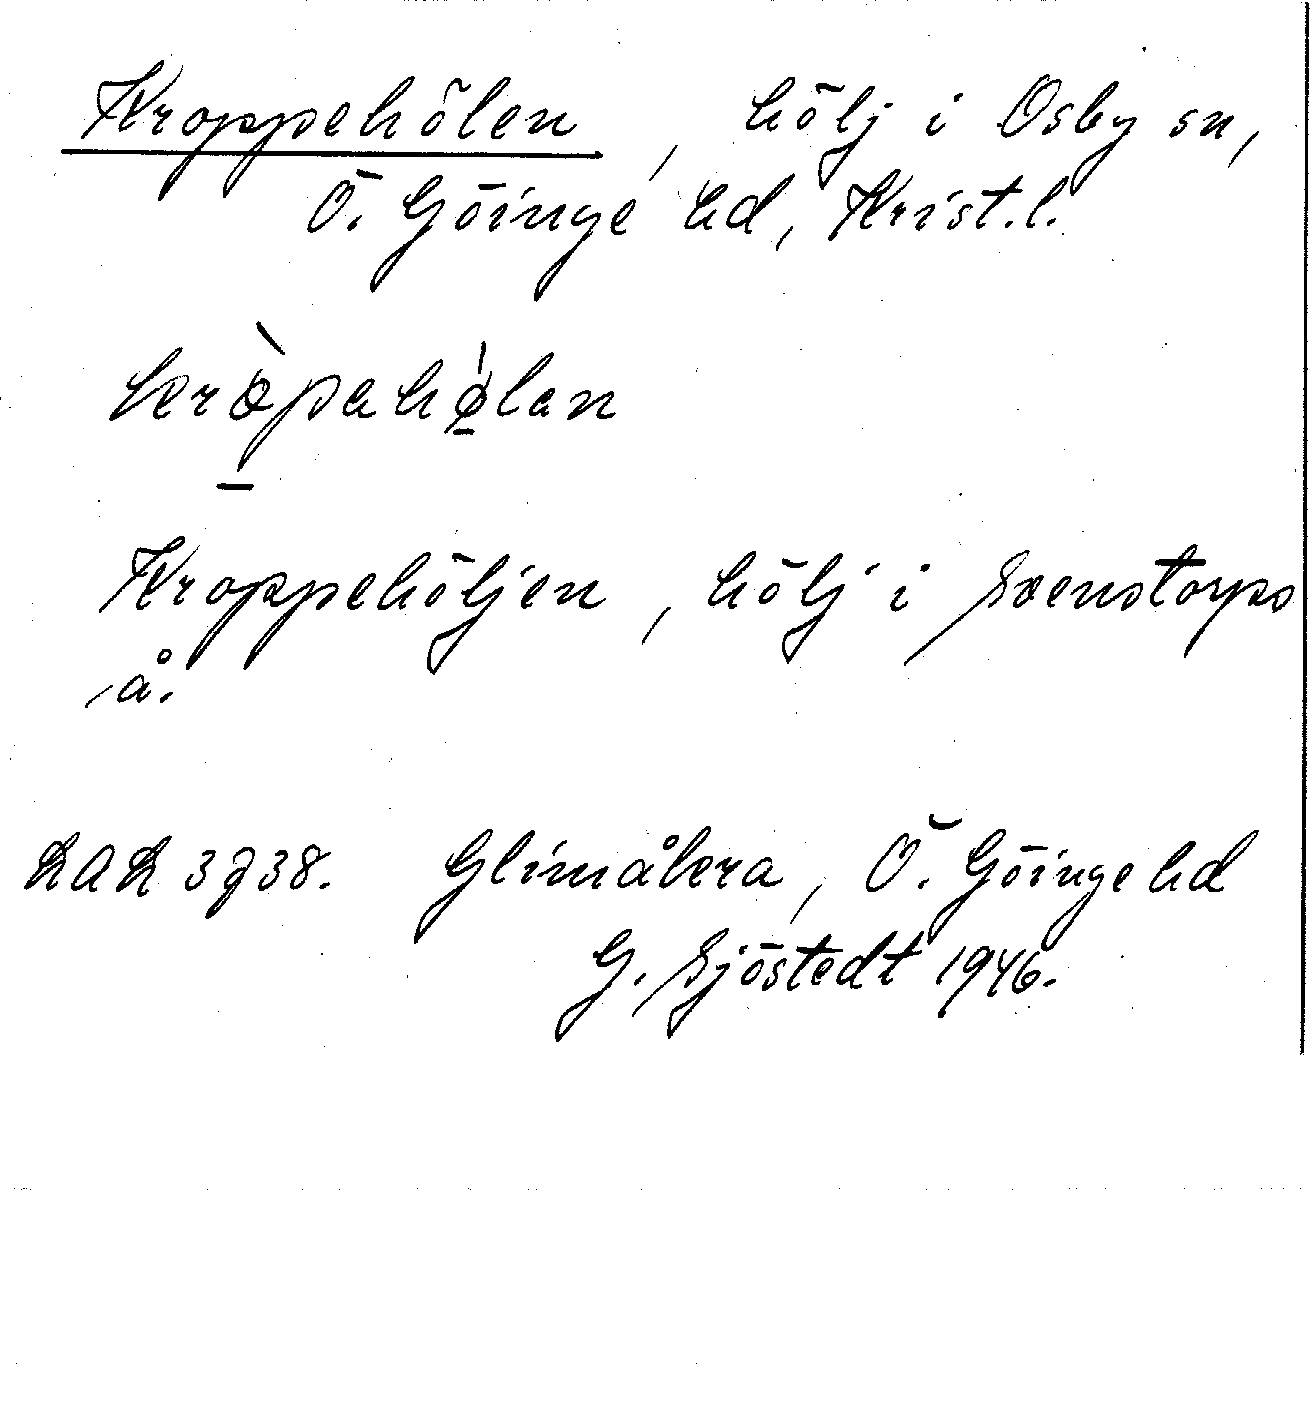 Kroppehölen, hölj i Osby sn,
Ö. Göinge hd, Krist.l.
Kroppehöljen, hölj i Svenstorps
å.
LAL 3738. Glimåkra, Ö. Göinge hd
G. Sjöstedt 1946.